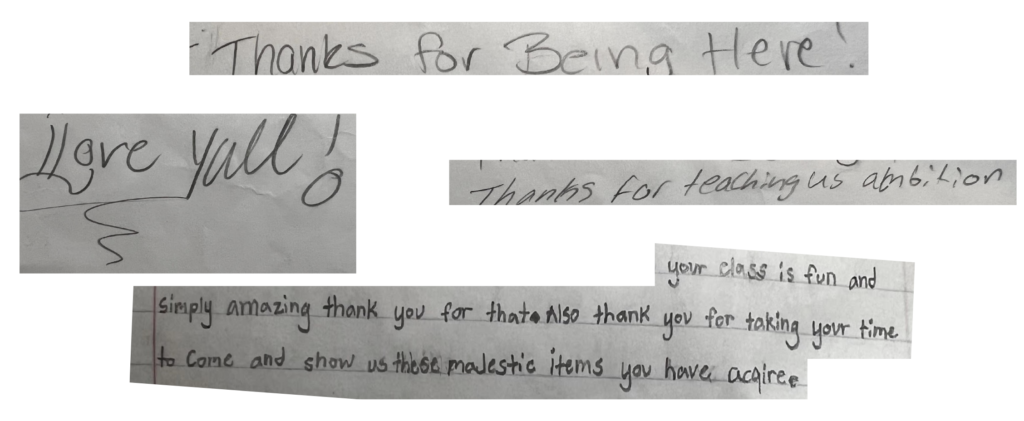 - Thanks for Being Here!
I Love Yall!
Thanks for teaching us ambition
your class is fun and
simply amazing thank you for that. Also thank you for taking your time
to come and show us these majestic items you have acqire